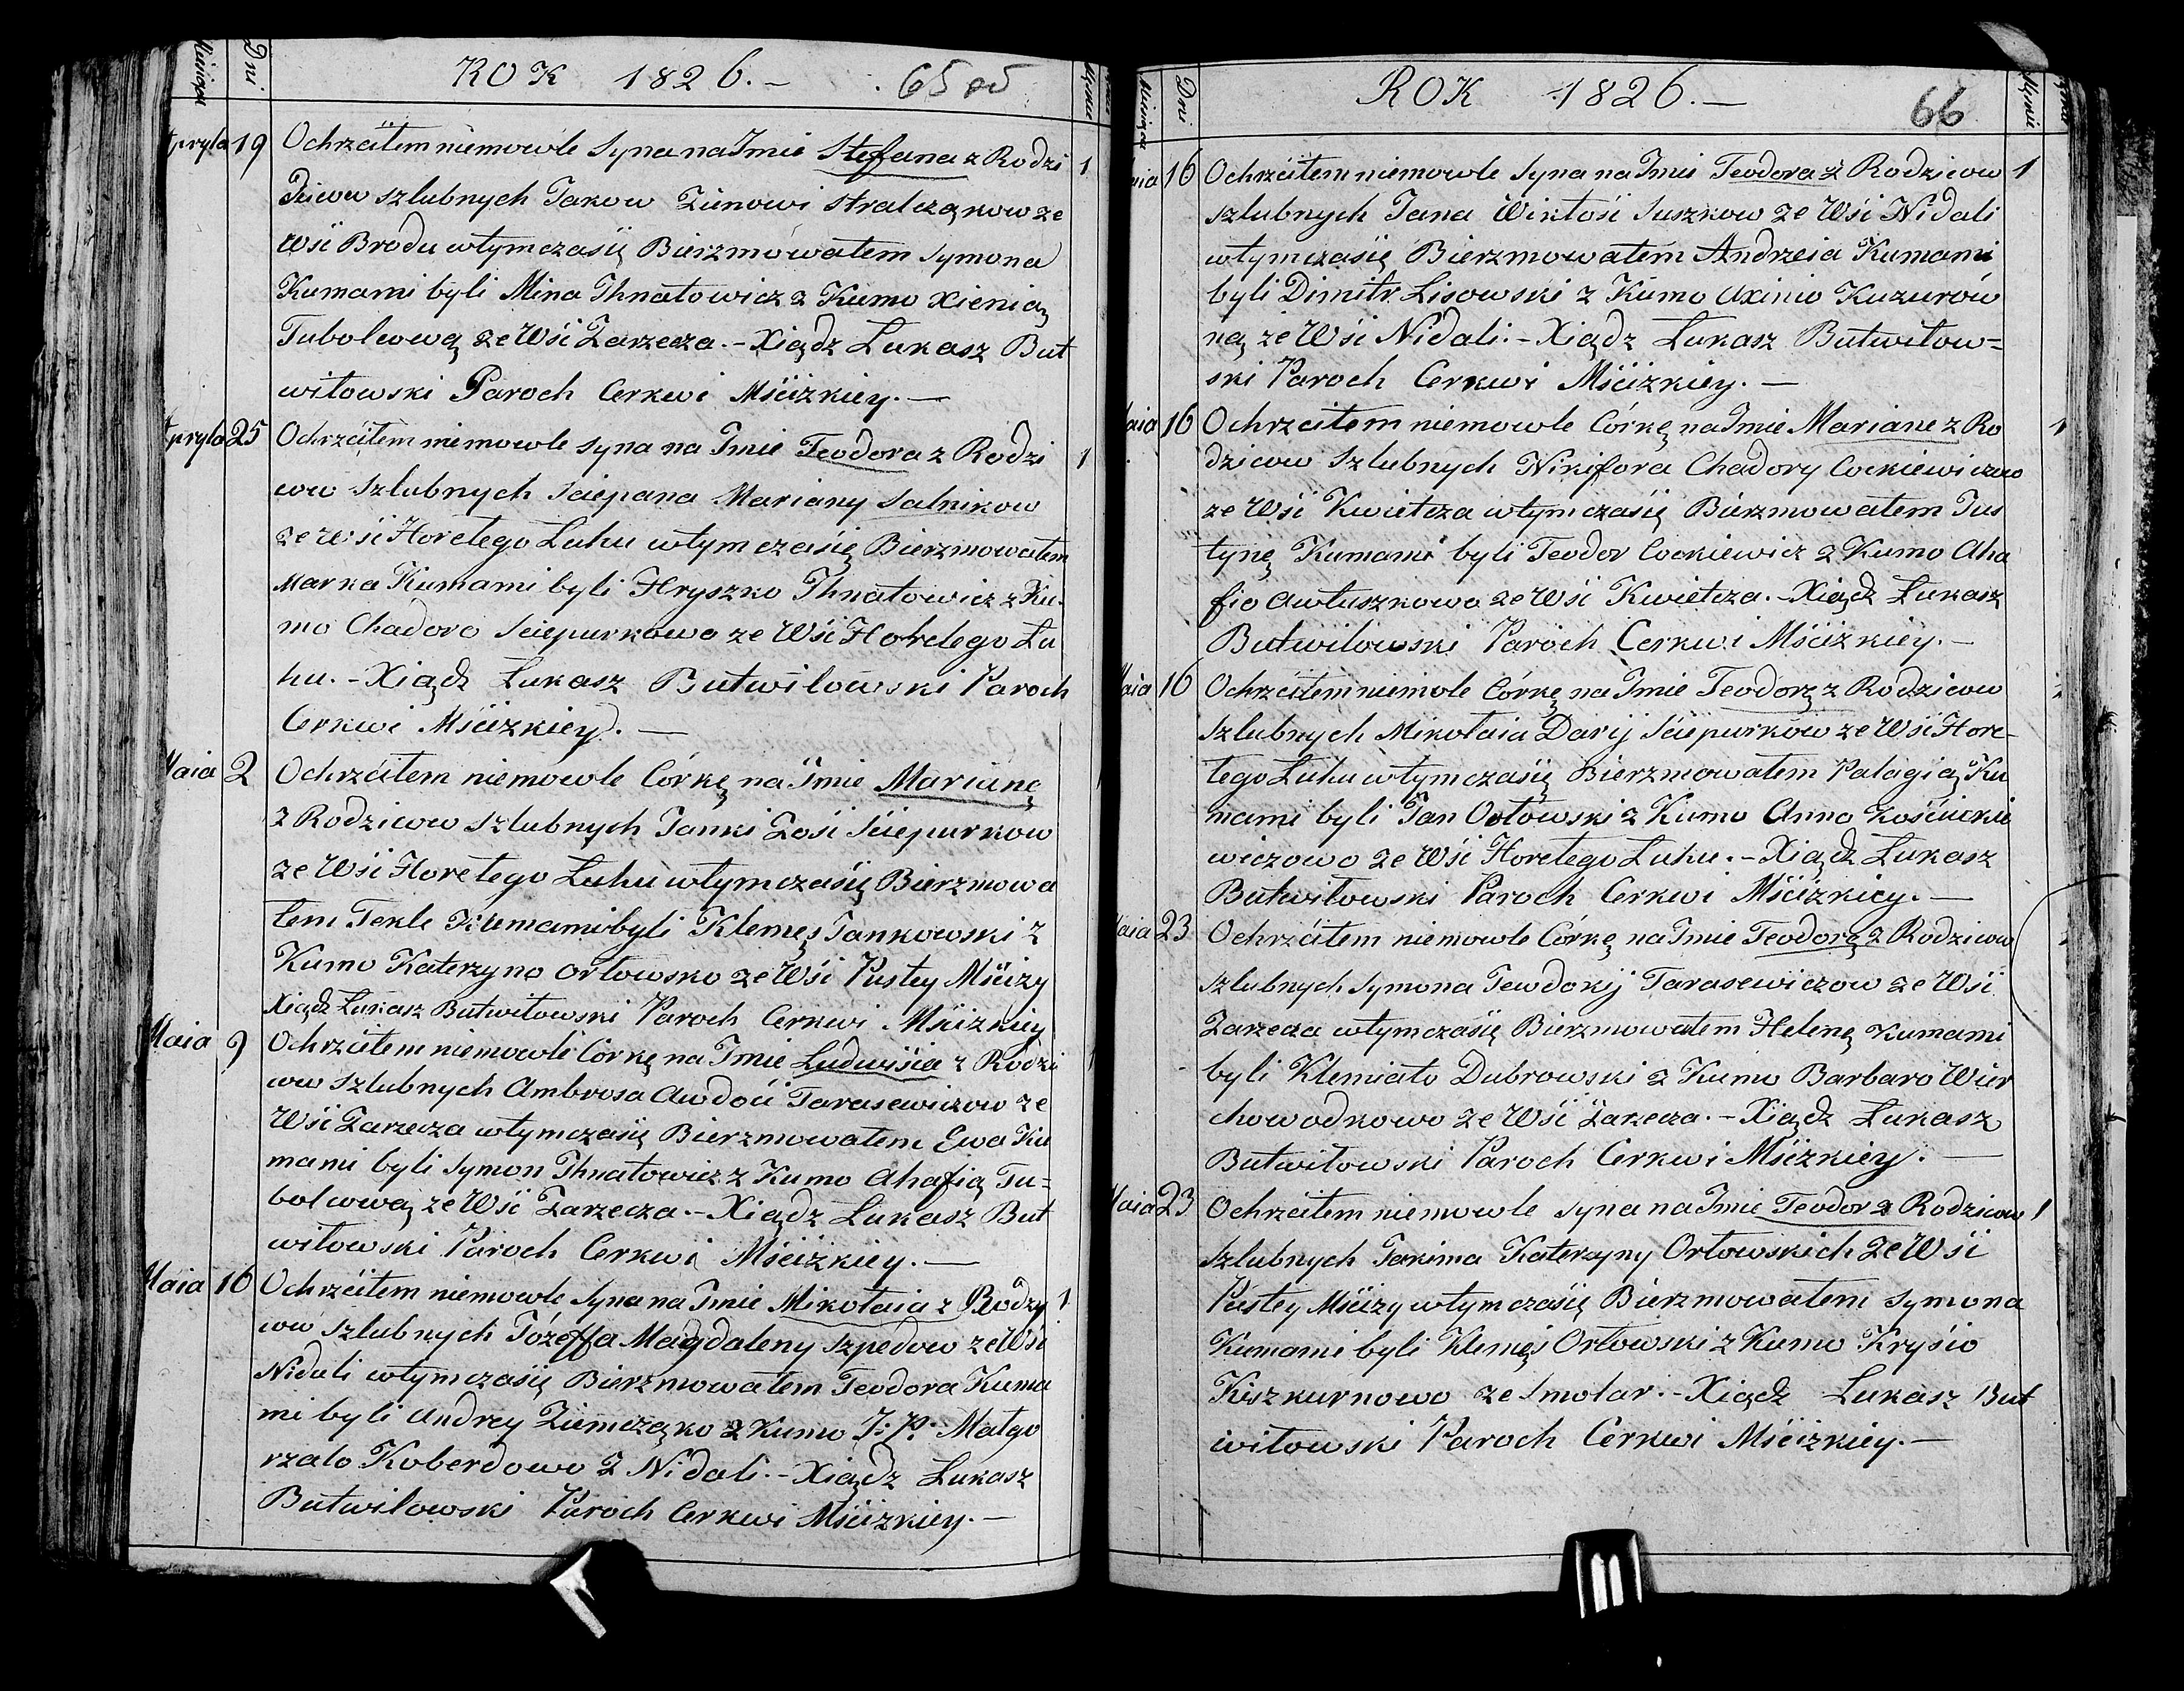 Dni
ROK 1826.-
65
Apryla 19 Ochrzciłem niemowle Syna na Jmie Stefana z Rodzi 1
dzicow szlubnych Jakow Zienowi Stralcząkow ze
Wśi Brodu wtymczasię Bierzmowałem Symona
Kumami byli Mina Jhnatowicz z Kumo Xienią
Tubolcową ze Wśi Zarzecza.- Xiądz Łukasz But
wiłowski Paroch Cerkwi Mścizkiey.-
Apryla 25 Ochrzciłem niemowle syna na Jmie Teodora z Rodzi 1
cow szlubnych Sciepana Mariany Salnikow
ze Wśi Horełego Łuhu wtymczasię Bierzmowałem
Marka Kumami byli Hryszko Jhnatowicz z Ku
mo Chadoro Sciepurkowo ze Wśi Horełego Łu
hu.- Xiądz Łukasz Butwiłowski Paroch
Cerkwi Mścizkiey.-
Maia 2 Ochrzciłem niemowle Córkę na Jmie Marianę
z Rodzicow szlubnych Janki Zosi Sciepurkow
ze Wśi Horełego Łuhu wtymczasię Bierzmowa
łem Tekle Kumami byli Klemęs Jankowski z
Kumo Katerzyno Orłowsko ze Wśi Pustey Mścizy
Xiądz Łukasz Butwiłowski Paroch Cerkwi Mścizkiey
Maia 9 Ochrzciłem niemowle Córkę na Jmie Ludwisia z Rodzi 1
cow szlubnych Ambrosa Awdoci Tarasewiczow ze
Wśi Zarzecza wtymczasię Bierzmowałem Ewa Ku
mami byli Symon Jhnatowicz z Kumo Ahafią Tu=
bolcową ze Wśi Zarzecza.- Xiądz Łukasz But
wiłowski Paroch Cerkwi Mścizkiey.-
Maia 16 Ochrzciłem niemowle Syna na Jmie Mikołaia z Rodzy 1
cow szlubnych Józeffa Magdaleny Szpedow ze Wśi
Nidali wtymczasię Bierzmowałem Teodora Kuma
mi byli Andrey Ziemcząko z Kumo J: P: Małgo
rzato Koberdowo z Nidali.- Xiądz Łukasz
Butwiłowski Paroch Cerkwi Mścizkiey.-
Dni
ROK 1826.-
66
Maia 16 Ochrzciłem niemowle Syna na Jmie Teodora z Rodzicow 1
szlubnych Jana Wiktosi Suszkow ze Wśi Nidali
wtymczasię Bierzmowałem Andrzeia Kumami
byli Dimitr Lisowski z Kumo Axinio Kuzurow
ną ze Wśi Nidali.- Xiądz Łukasz Butwiłow=
ski Paroch Cerkwi Mścizkiey.-
Maia 16 Ochrzciłem niemowle Córkę na Jmie Mariane z Ro 1
dzicow szlubnych Nikifora Chadory Cockiewiczow
ze Wśi Kwietcza wtymczasię Bierzmowałem Jus
tynę Kumami byli Teodor Cockiewicz z Kumo Aha
fio Awłuszkowo ze Wśi Kwietcza.- Xiądz Łukasz
Butwiłowski Paroch Cerkwi Mścizkiey.-
Maia 16 Ochrzciłem niemowle Córkę na Jmie Teodorę z Rodzicow
szlubnych Mikołaia Darij Sciepurkow ze Wśi Hore-
łego Łuhu wtymczasię Bierzmowałem Palagią Ku
mami byli Jan Orłowski z Kumo Anno Kościuckie
wiczowo ze Wśi Horełego Łuhu.- Xiądz Łukasz
Butwiłowski Paroch Cerkwi Mścizkiey.-
Maia 23 Ochrzciłem niemowle Córkę na Jmie Teodorę z Rodzicow
szlubnych Symona Tewdokij Tarasewiczow ze Wśi
Zarzecza wtymczasię Bierzmowałem Helenę Kumami
byli Klemiato Dubrowski z Kumo Barbaro Wier
chowodkowo ze Wśi Zarzecza.- Xiądz Łukasz
Butwiłowski Paroch Cerkwi Mścizkiey.-
Maia 23 Ochrzciłem niemowle syna na Jmie Teodor z Rodzicow 1
szlubnych Jakima Katerzyny Orłowskich ze Wśi
Pustey Mścizy wtymczasię Bierzmowałem Symona
Kumami byli Klemęs Orłowski z Kumo Kryśio
Kiszkurnowo ze Smolar.- Xiądz Łukasz But
wiłowski Paroch Cerkwi Mścizkiey.-